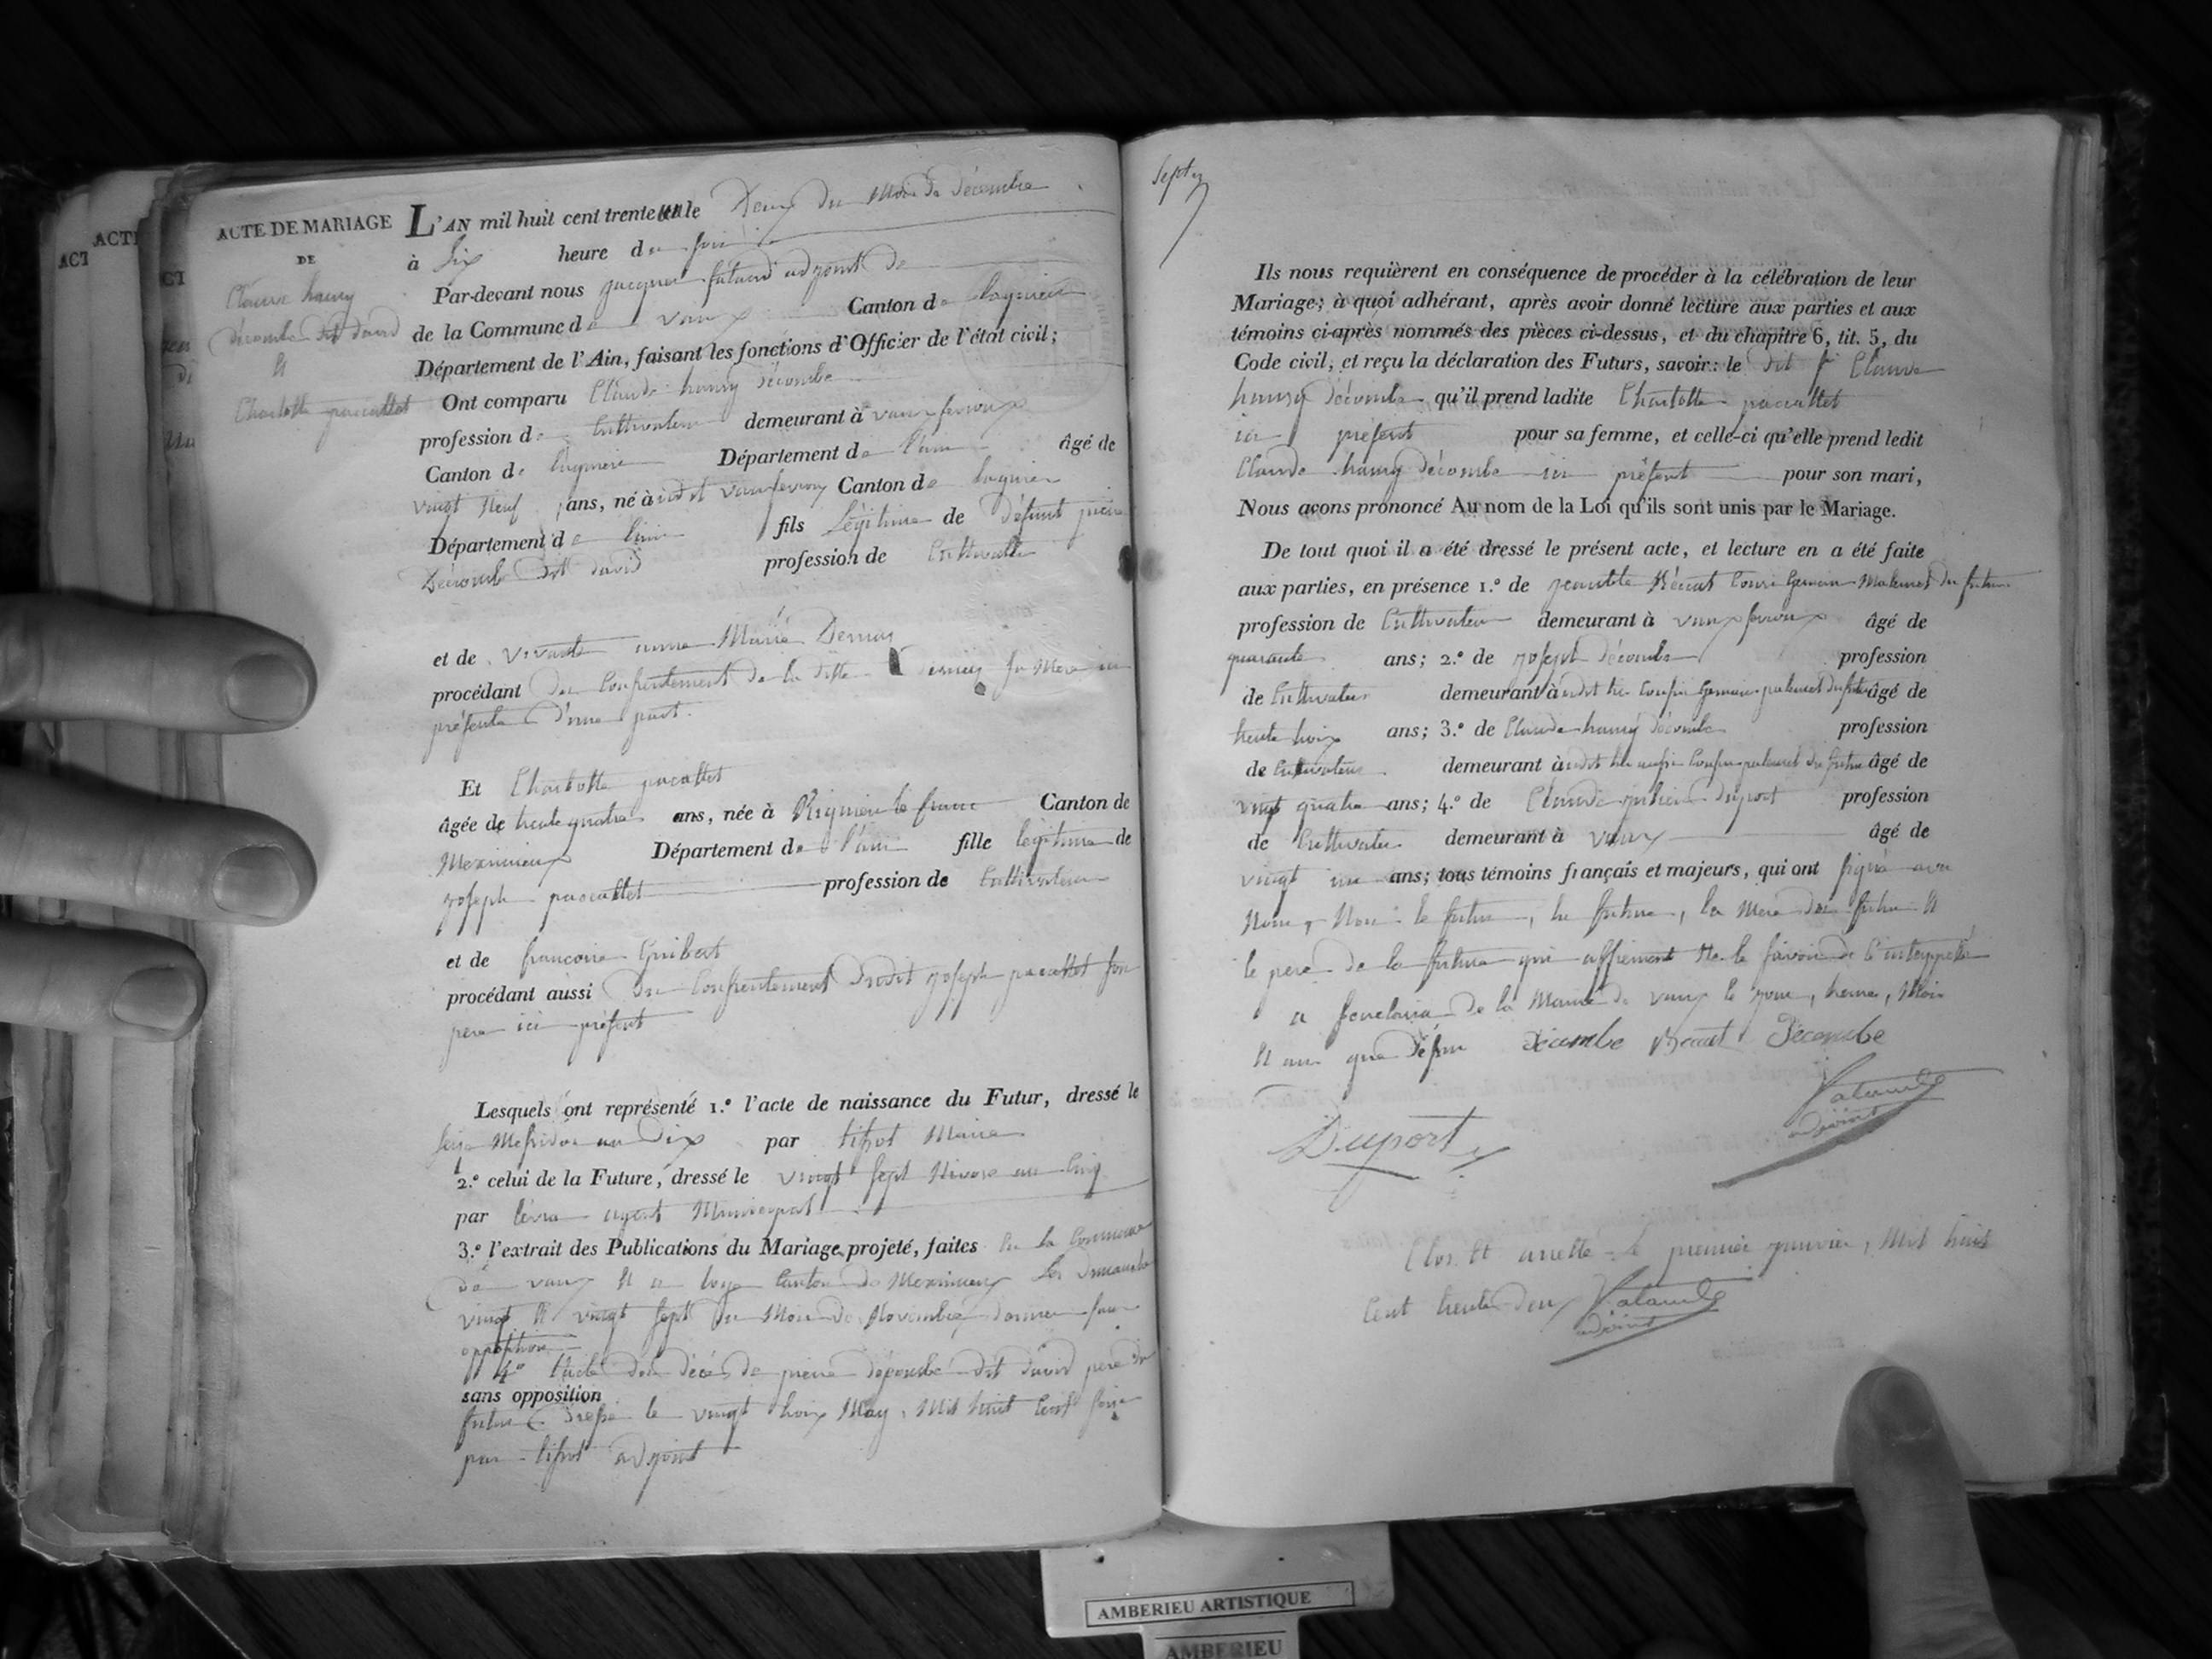 ACTE DE MARIAGE
DE
Claude hanry
décombe dit david
et
Charlotte pacattet
L'AN mil huit cent trente un le Deux du Mois de décembre
à Six heure du soir
Par-devant nous jacques adjoint de
de la Commune de vaux Canton de lagnieu
Département de l'Ain, faisant les fonctions d'Officier de l'état civil;
Ont comparu Claude hanry décombe
profession de Cultivateur demeurant à vaux fevroux
Canton de lagnieu Département de l'ain âgé de
vingt Neuf ans, né à vaux fevroux Canton de lagnieu
Département de l'ain fils Légitime de défunt pierre
Décombe dit david profession de Cultivateur
et de vivante Marie
procédant du Consentement de la ditte sa Mere ici
présente d'une part.
Et Charlotte pacattet
âgée de trente quatre ans, née à Rignieu le franc Canton de
Meximieux Département de l'ain fille legitime de
joseph pacattet profession de Cultivateur
et de francoise Guibert
procédant aussi du Consentement dudit joseph pacattet son
pere ici présent
Lesquels ont représenté 1.º l'acte de naissance du Futur, dressé le
Messidor an Dix par tissot Maire
2.º celui de la Future, dressé le vingt sept Nivose an Cinq
par agent Municipal
3.º l'extrait des Publications du Mariage projeté, faites en la Commune
de vaux et a loye Canton de Meximieux les dimanche
vingt et vingt sept du Mois de Novembre dernier sans
opposition
4º l'acte de décés de pierre décombe dit david pere du
sans opposition
futur dressé le vingt trois May, Mil huit Cent
par tissot adjoint
Sept
Ils nous requièrent en conséquence de procéder à la célébration de leur
Mariage; à quoi adhérant, après avoir donné lecture aux parties et aux
témoins ci-après nommés des pièces ci-dessus, et du chapitre 6, tit. 5, du
Code civil, et reçu la déclaration des Futurs, savoir: le dit Claude
hanry décombe qu'il prend ladite Charlotte pacattet
ici présent pour sa femme, et celle-ci qu'elle prend ledit
Claude hanry décombe ici présent pour son mari,
Nous avons prononcé Au nom de la Loi qu'ils sont unis par le Mariage.
De tout quoi il a été dressé le présent acte, et lecture en a été faite
aux parties, en présence 1.º de Cousin Germain Maternel du futur
profession de Cultivateur demeurant à vaux fevroux âgé de
quarante ans; 2.º de joseph décombe profession
de Cultivateur demeurant à Cousin Germain paternel du futur âgé de
trente troix ans; 3.º de Claude hanry décombe profession
de Cultivateur demeurant à paternel du futur âgé de
vingt quatre ans; 4.º de Claude julien duport profession
de Cultivateur demeurant à vaux âgé de
vingt un ans; tous témoins français et majeurs, qui ont signé avec
Nous, Non le futur, la future, la Mere du futur et
le pere de la future qui affirment Ne le savoir
de la Mairie de vaux le jour, heure, Mois
et an que dessus Décombe Décombe
adjoint
Duport
Clos et arretté le premier janvier, Mil huit
Cent trente deux
adjoint
AMBERIEU ARTISTIQUE
AMBERIEU
ACTE
ACT